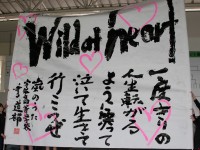 Wild at heart!
一度きりの
人生転がる
よう笑って
泣いて生きて
行こうぜ
嵐のうた
書道部